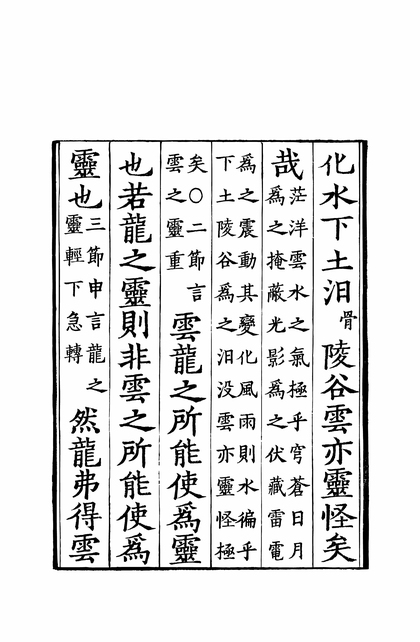 化水下土汩骨陵谷雲亦靈怪矣
哉茫洋雲水之氣極乎穹蒼日月
爲之掩蔽光影爲之伏藏雷電
爲之震動其變化風雨則水徧乎
下土陵谷爲之汩没雲亦靈怪極
矣〇二節言
雲之靈重
雲龍之所能使爲靈
也若龍之靈則非雲之所能使爲
靈也三節申言龍之
靈輕下急轉
然龍弗得雲